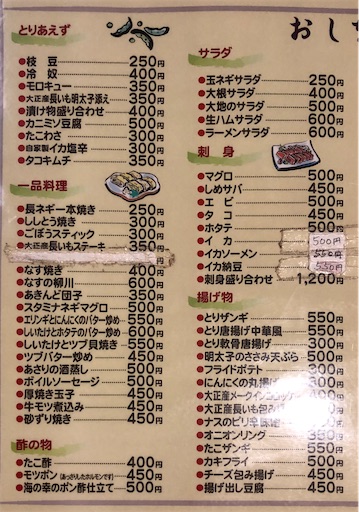 とりあえず
●枝豆 250円
●冷奴 400円
●モロキュー 350円
●大正産長いも明太子添え 350円
●漬け物盛り合わせ 400円
●カニミソ豆腐 500円
●たこわさ 300円
●自家製イカ塩辛 300円
●タコキムチ 350円
一品料理
●長ネギ一本焼き 250円
●ししとう焼き 300円
●ごぼうスティック 300円
●大正産長いもステーキ 350円
●なす焼き 400円
●なすの柳川 600円
●あきんど団子 350円
●スタミナネギマグロ 500円
●エリンギとにんにくのバター炒め 550円
●しいたけとホタテのバター炒め 600円
●しいたけとツブ貝焼き 550円
●ツブバター炒め 450円
●あさりの酒蒸し 500円
●ボイルソーセージ 500円
●厚焼き玉子 450円
●牛モツ煮込み 450円
●砂ずり焼き 450円
酢の物
●たこ酢 400円
●モツポン(あっさりしたホルモンです) 450円
●海の幸のポン酢仕立て 500円
おし
サラダ
●玉ネギサラダ 250円
●大根サラダ 400円
●大地のサラダ 500円
●生ハムサラダ 600円
●ラーメンサラダ 600円
刺身
●マグロ 500円
●しめサバ 450円
●エビ 500円
●タコ 450円
●ホタテ 500円
●イカ 500円
●イカソーメン 550円
●イカ納豆 550円
●刺身盛り合わせ 1,200円
揚げ物
●とりザンギ 550円
●とり唐揚げ中華風 550円
●とり軟骨唐揚げ 300円
●明太子のささみ天ぷら 500円
●フライドポテト 300円
●にんにくの丸揚げ 300円
●大正産メークイン
●大正産長いも包み揚げ
●ナスのピリ辛味噌
●オニオンリング 350円
●たこザンギ 550円
●カキフライ 500円
●チーズ包み揚げ 450円
●揚げ出し豆腐 450円